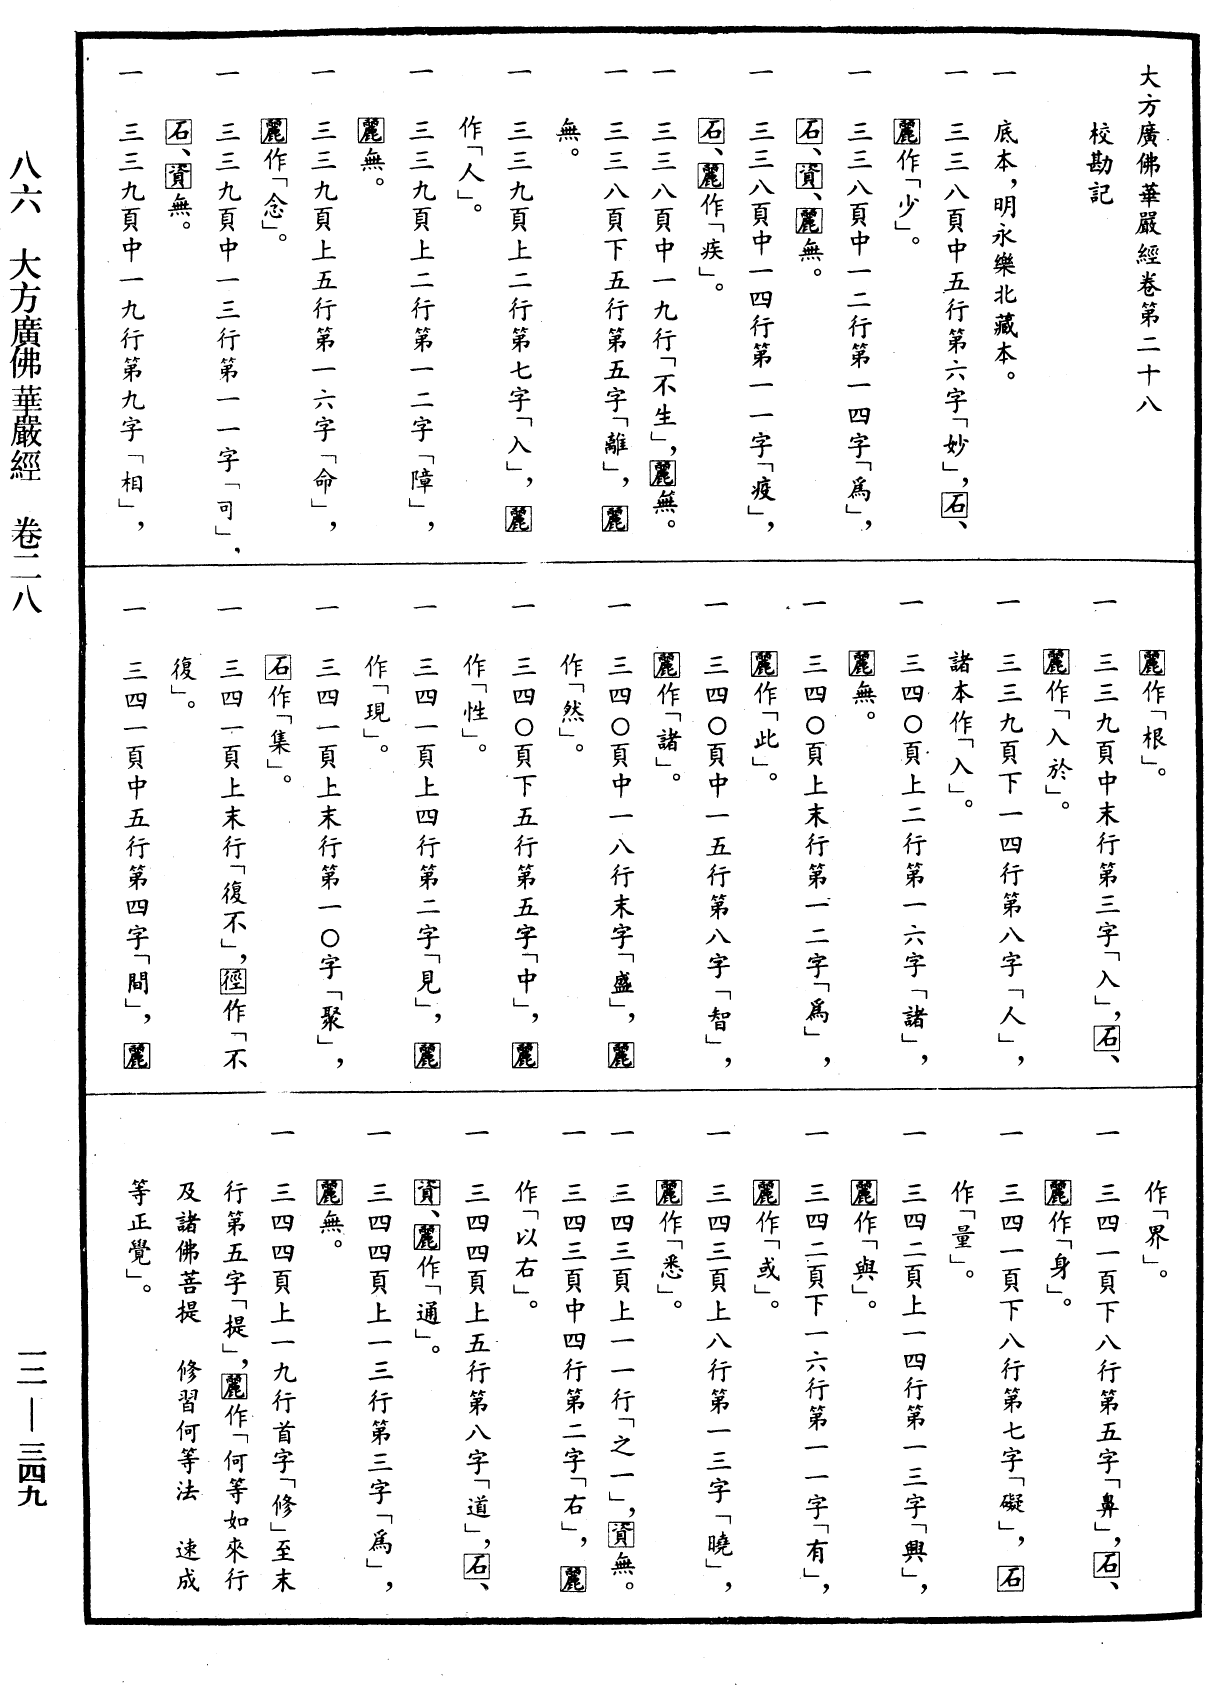 大方廣佛華嚴經卷第二十八
校勘記
一 底本，明永樂北藏本。
一 三三八頁中五行第六字「妙」，石、
麗作「少」。
一 三三八頁中一二行第一四字「爲」，
石、資、麗無。
一 三三八頁中一四行第一一字「疫」，
石、麗作「疾」。
一 三三八頁中一九行「不生」，麗無。
一 三三八頁下五行第五字「離」，麗
無。
一 三三九頁上二行第七字「入」，麗
作「人」。
一 三三九頁上二行第一二字「障」，
麗無。
一 三三九頁上五行第一六字「命」，
麗作「念」。
一 三三九頁中一三行第一一字「可」，
石、資無。
一 三三九頁中一九行第九字「相」，
麗作「根」。
一 三三九頁中末行第三字「入」，石、
麗作「入於」。
一 三三九頁下一四行第八字「人」，
諸本作「入」。
一 三四〇頁上二行第一六字「諸」，
麗無。
一 三四〇頁上末行第一二字「爲」，
麗作「此」。
一 三四〇頁中一五行第八字「智」，
麗作「諸」。
一 三四〇頁中一八行末字「盛」，麗
作「然」。
一 三四〇頁下五行第五字「中」，麗
作「性」。
一 三四一頁上四行第二字「見」，麗
作「現」。
一 三四一頁上末行第一〇字「聚」，
石作「集」。
一 三四一頁上末行「復不」，徑作「不
復」。
一 三四一頁中五行第四字「間」，麗
作「界」。
一 三四一頁下八行第五字「鼻」，石、
麗作「身」。
一 三四一頁下八行第七字「礙」，石
作「量」。
一 三四二頁上一四行第一三字「興」，
麗作「與」。
一 三四二頁下一六行第一一字「有」，
麗作「或」。
一 三四三頁上八行第一三字「曉」，
麗作「悉」。
一 三四三頁上一一行「之一」，資無。
一 三四三頁中四行第二字「右」，麗
作「以右」。
一 三四四頁上五行第八字「道」，石、
資、麗作「通」。
一 三四四頁上一三行第三字「爲」，
麗無。
一 三四四頁上一九行首字「修」至末
行第五字「提」，麗作「何等如來行
及諸佛菩提 修習何等法 速成
等正覺」。
八六 大方廣佛華嚴經 卷二八
一二—三四九